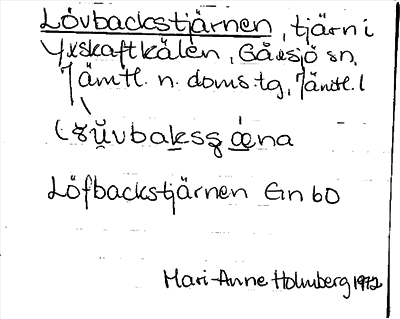 Lövbackstjärnen, tjärn i
Yxskaftkälen, Gåxsjö sn,
Jämtl. n. doms tg, Jämtl. l
Löfbackstjärnen Gn 60
Mari-Anne Holmberg 1972